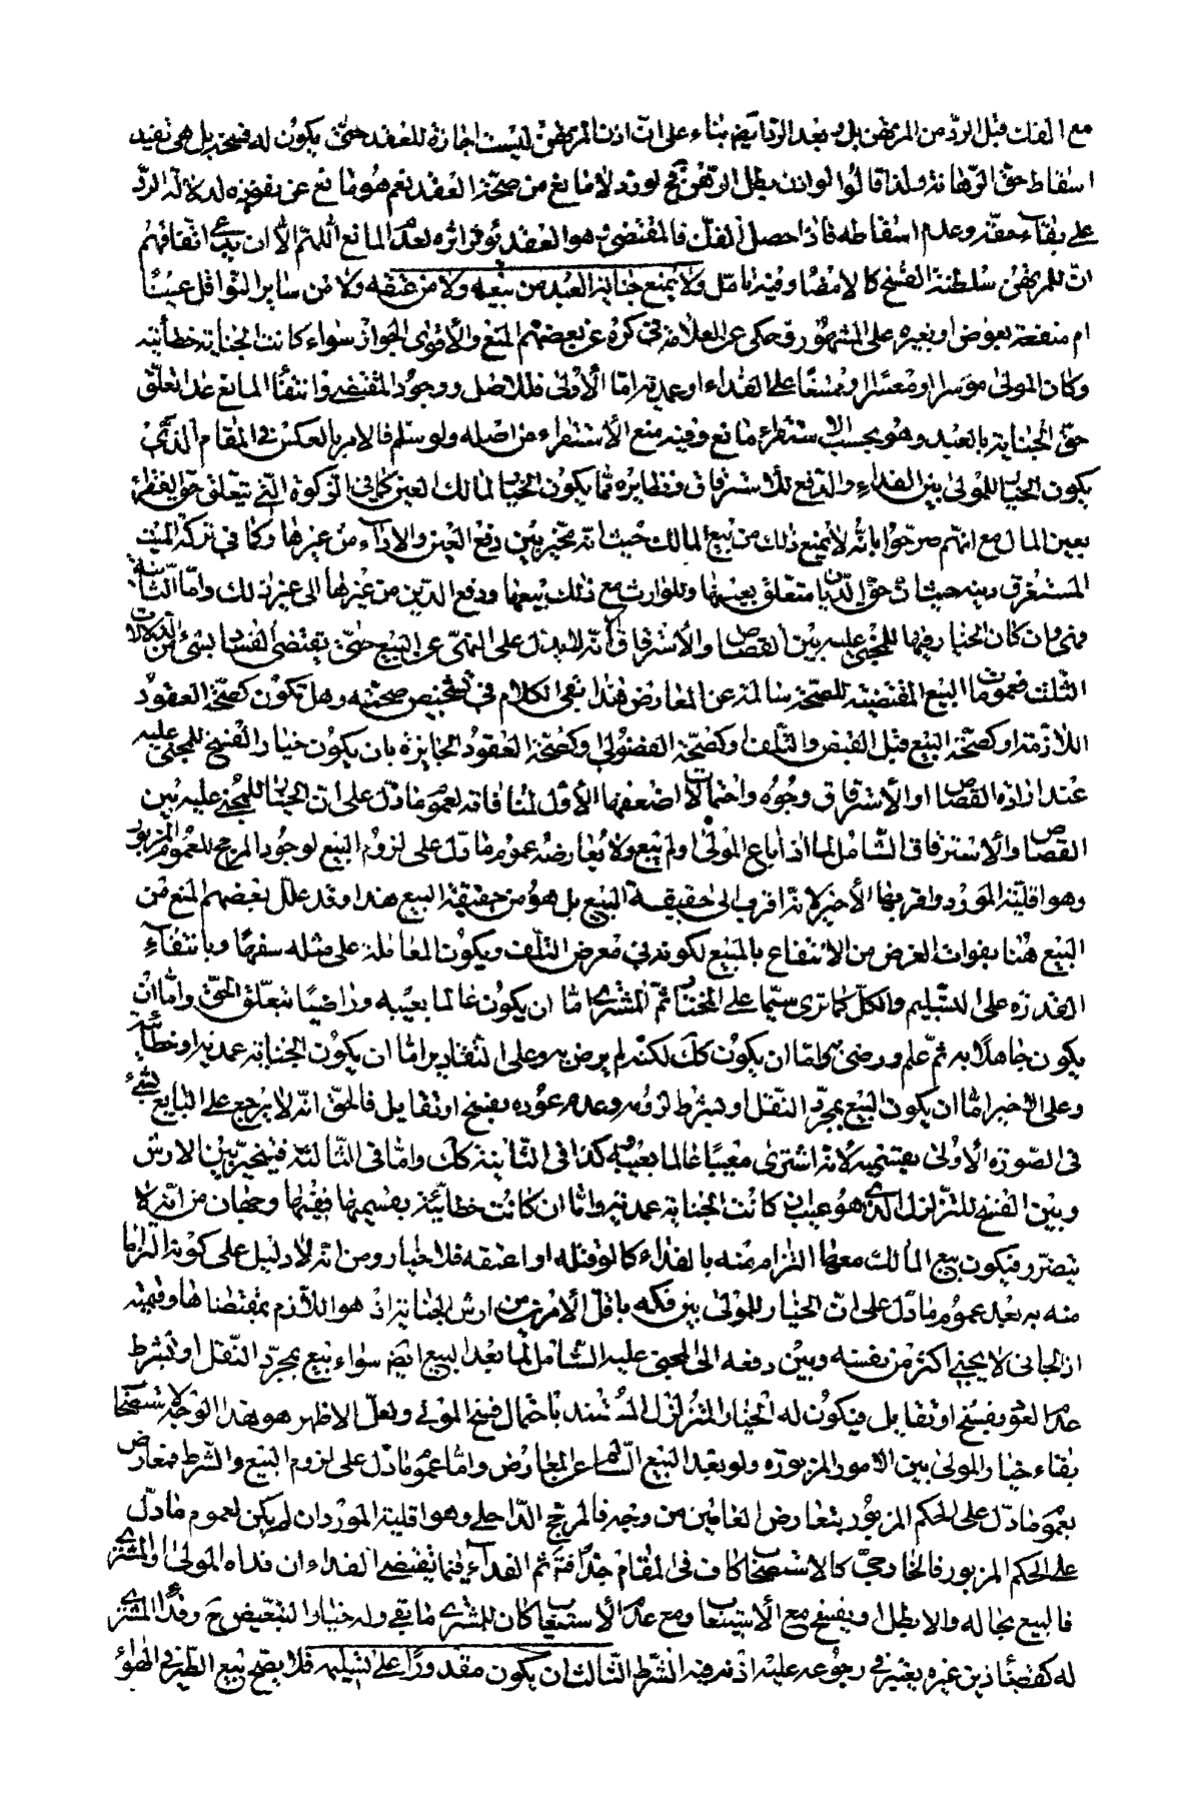 مع الفك قبل الرد من المرتهن بل وبعد الرد ايضا بناء على ان اذن المرتهن ليست اجازة للعقد حتى يكون له فسخه بل هى تفيد
اسقاط حق الرهانة ولذا قالوا لو اذن بطل الرهن فح لو رد لا مانع من صحة العقد نعم هو مانع عن نفوذه لدلالة الرد
على بقاء حقه وعدم اسقاطه فاذا حصل الفك فالمقتضى وهو العقد يؤثر اثره لعدم المانع اللهم الا ان يدعى اتفاقهم
ان للمرتهن سلطنة الفسخ كالامضاء وفيه تامل ولا يمنع جناية العبد من بيعه ولا من عتقه ولا من ساير النواقل عينا
ام منفعة بعوض او بغيره على المشهور وحكى عن العلامة فى كره عن بعضهم المنع والاقوى الجواز سواء كانت الجناية خطائية
وكان المولى موسرا او معسرا او ممتنعا على الفداء او عمدية اما الاولى فللاصل ووجود المقتضى وانتفاء المانع عدا تعلق
حق الجناية بالعبد وهو بحسب الاستقراء مانع وفيه منع الاستقراء من اصله ولو سلم فالامر بالعكس فى المقام الذى
يكون الخيار للمولى بين الفداء والدفع للاسترقاق ونظايره مما يكون الخيار لمالك العين كما فى الزكوة التى يتعلق حق الفقراء
بعين المال مع انهم صرحوا بانه لا يمنع ذلك من بيع المالك حيث انه مخير بين دفع العين والاداء من غيرها وكما فى تركة الميت
المستغرق دينه حيث ان حق الديان متعلق بعينها وللوارث مع ذلك بيعها ودفع الدين من غيرها الى غير ذلك واما الثانية
فهى وان كان الخيار فيها للمجنى عليه بين القصاص والاسترقاق الا انه لا يدل على النهى عن البيع حتى يقتضى الفساد بشئ من الدلالات
الثلث فعمومات البيع المقتضية للصحة سالمة عن المعارض هذا بقى الكلام فى تشخيص صحته وهل تكون كصحة العقود
اللازمة او كصحة البيع قبل القبض والتلف او كصحة الفضولى او كصحة العقود الجايزة بان يكون خيار الفسخ للمجنى عليه
عند ارادة القصاص او الاسترقاق وجوه واحتمالات اضعفها الاول لمنافاته لعموم ما دل على ان الخيار للمجنى عليه بين
القصاص والاسترقاق الشامل لما اذا باع المولى او لم يبع ولا يعارضه عموم ما دل على لزوم البيع لوجود المرجح للعموم المزبور
وهو اقلية المورد واقربها الاخير لانه اقرب الى حقيقة البيع بل هو من حقيقة البيع هذا وقد علل بعضهم المنع من
البيع هنا بفوات الغرض من الانتفاع بالمبيع لكونه فى معرض التلف ويكون المعاملة على مثله سفها وبانتفاء
القدرة على التسليم والكل كما ترى سيما على المختار ثم المشترى اما ان يكون عالما بعيبه وراضيا بتعلق الحق واما ان
يكون جاهلا به ثم علم ورضى واما ان يكون كك لكنه لم يرض به وعلى التقادير اما ان يكون الجناية عمدية او خطائية
وعلى الاخير اما ان يكون البيع بمجرد النقل او بشرط لزومه وعدم عوده بفسخ او تقايل فالحق انه لا يرجع على البايع بشئ
فى الصورة الاولى بقسميه لانه اشترى معيبا عالما بعيبه كذا فى الثانية كك واما فى الثالثة فيتخير بين الارش
وبين الفسخ للتزلزل الذى هو عيب ان كانت الجناية عمدية واما ان كانت خطائية بقسيميها ففيها وجهان من انه لا
يتضرر فيكون بيع المالك معها التزام منه بالفداء كما لو قتله او اعتقه فلا خيار ومن انه لا دليل على كونه التزاما
منه به بعد عموم ما دل على ان الخيار للمولى بين فكه باقل الامرين من ارش الجناية اذ هو اللازم بمقتضاها وقيمته
اذ الجانى لا يجنى اكثر من نفسه وبين دفعه الى المجنى عليه الشامل لما بعد البيع ايضا سواء بيع بمجرد النقل او بشرط
عدم العود بفسخ او تقايل فيكون له الخيار المتزلزل المستند باحتمال فسخ المولى ولعل الاظهر هو هذا الوجه لاستصحاب
بقاء خيار المولى بين الامور المزبورة ولو بعد البيع السالم عن المعارض واما عموم ما دل على لزوم البيع والشرط فمعارض
بعموم ما دل على الحكم المزبور بتعارض العامين من وجه فالمرجح الداخلى وهو اقلية المورد ان لم يكن لعموم ما دل
على الحكم المزبور فالخارجى كالاستصحاب كاف فى المقام جدا فت ثم الفداء فيما يقتضى الفداء ان فداه المولى او المشترى
فالبيع بحاله والا بطل او يفسخ مع الاستيعاب ومع عدم الاستيعاب كان للمشترى ما بقى وله خيار التبعيض ح وفداء المشترى
له كقضاء دين غيره يعتبر فى رجوعه عليه اذنه فيه الشرط الثالث ان يكون مقدورا على تسليمه فلا يصح بيع الطير فى الهواء